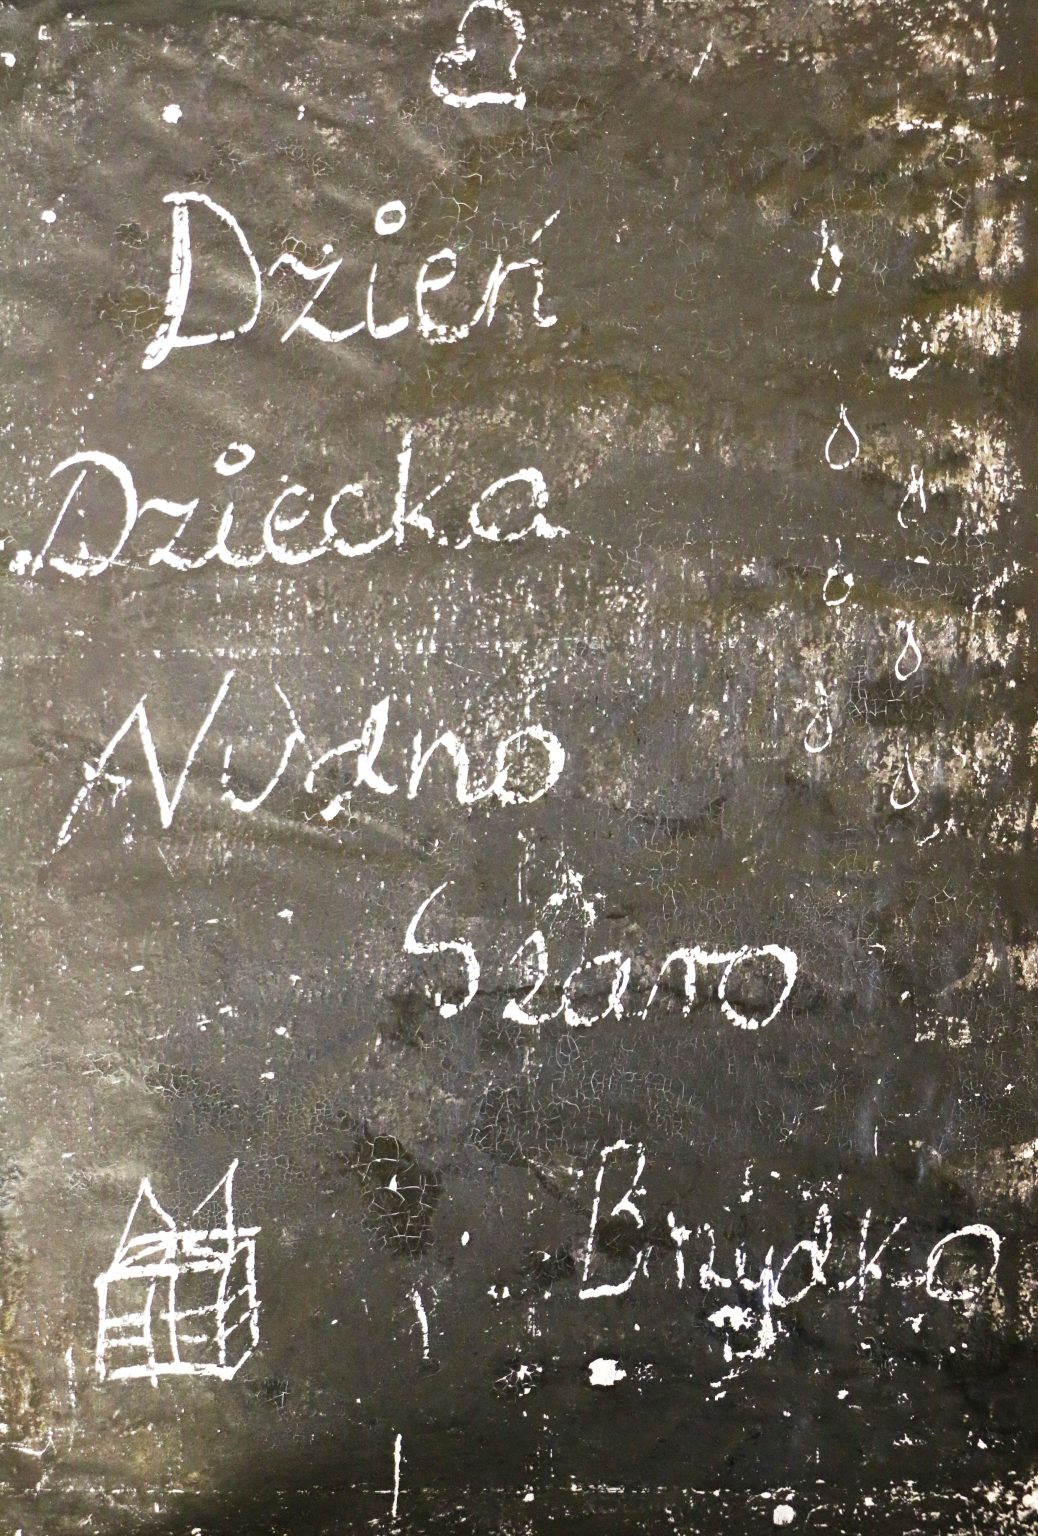 2
Dzień
Dziecka
Nudno
Szaro
Brzydko